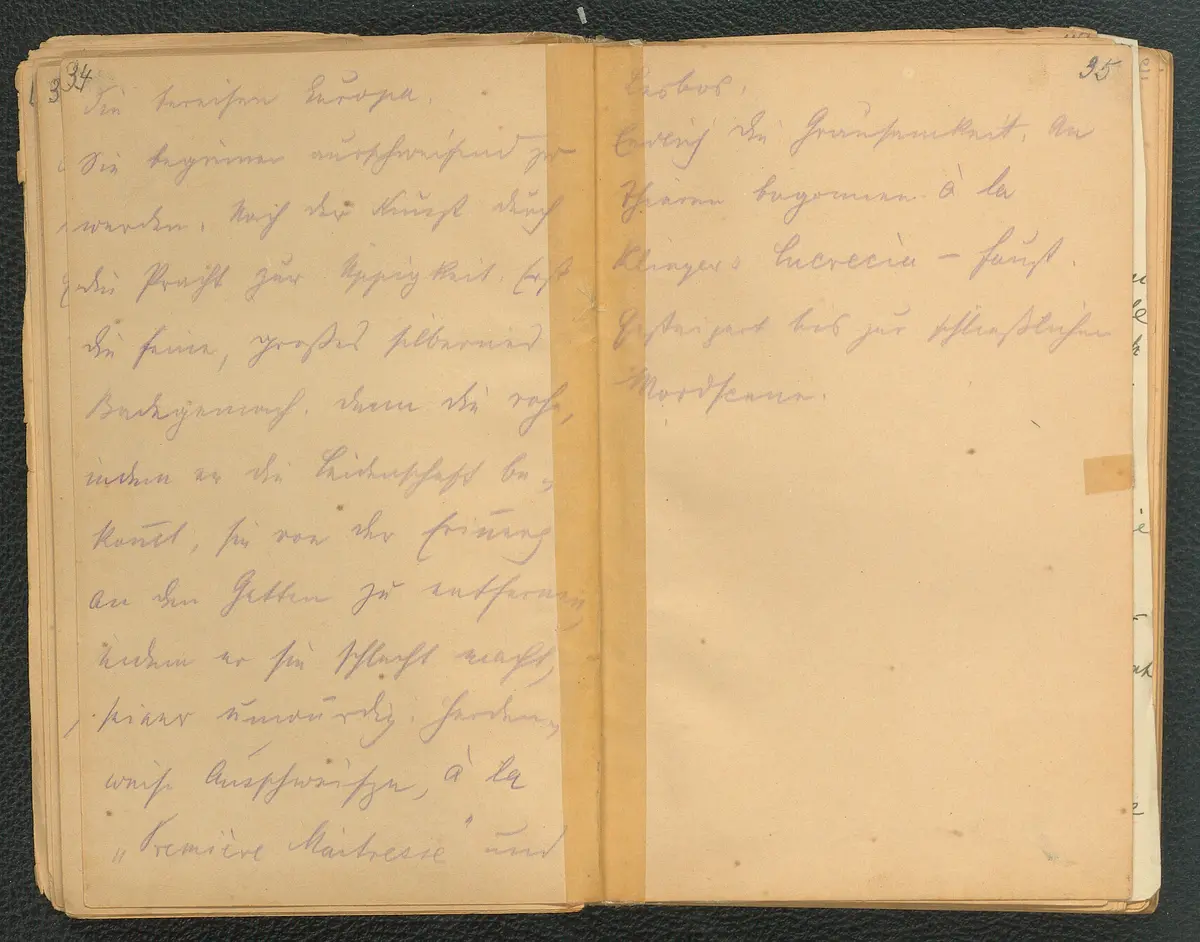 34
Sie bereisen Europa.
Sie beginnen ausschweifend zu
werden. Nach der Kunst durch
die Pracht zur Üppigkeit. Erst
die feine, großes silbernes
Badegemach. dann die rohe,
indem er die Leidenschaft be-
kommt, sie von der Erinnerg
an den Gatten zu entfernen,
indem er sie schlecht macht,
seiner unwürdig. Herden-
weise Ausschweifgn, à la
„Première Maitresse" und
35
Lesbos.
Endlich die Grausamkeit. An
Thieren begonnen à la
Klinger's Lucrecia – Faust.
Gesteigert bis zur schließlichen
Mordscene.